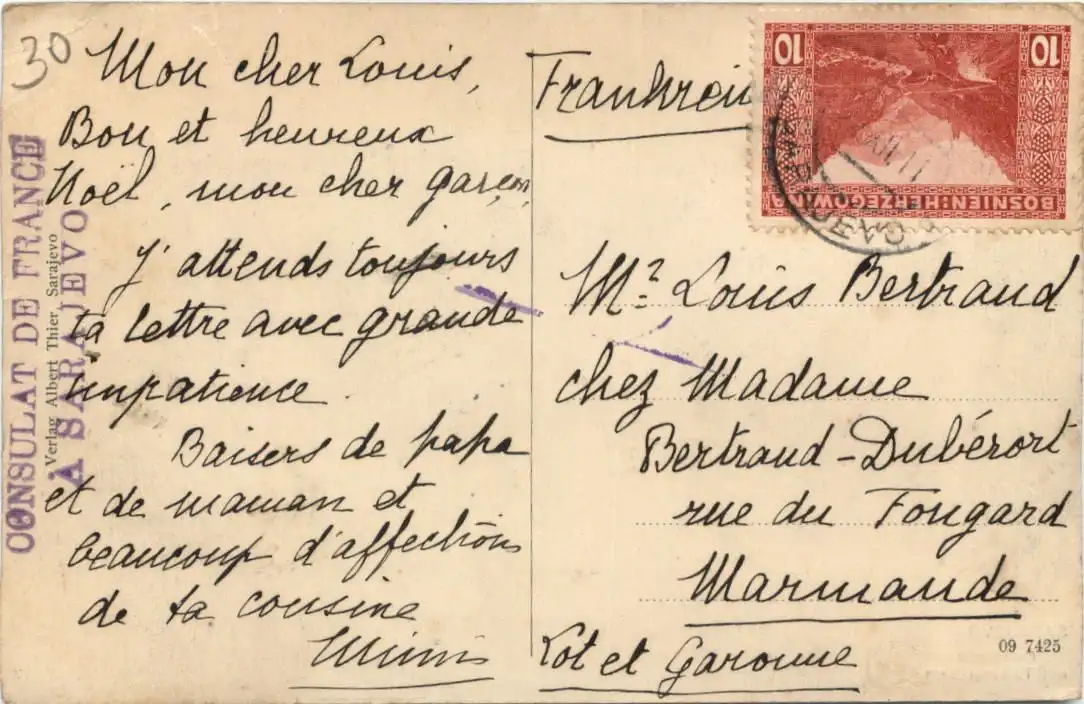 30
Mon cher Louis,
Bon et heureux
Noël, mon cher garçon,
J'attends toujours
ta lettre avec grande
impatience.
Baisers de papa
et de maman et
beaucoup d'affections
de ta cousine
Mimi
CONSULAT DE FRANCE
A SARAJEVO
Verlag Albert Thier Sarajevo
Frankreich
10
10
BOSNIEN:HERZEGOWINA
Mr. Louis Bertrand
chez Madame
Bertrand-Dubérort
rue du Fougard
Marmande
Lot et Garonne
09 7425